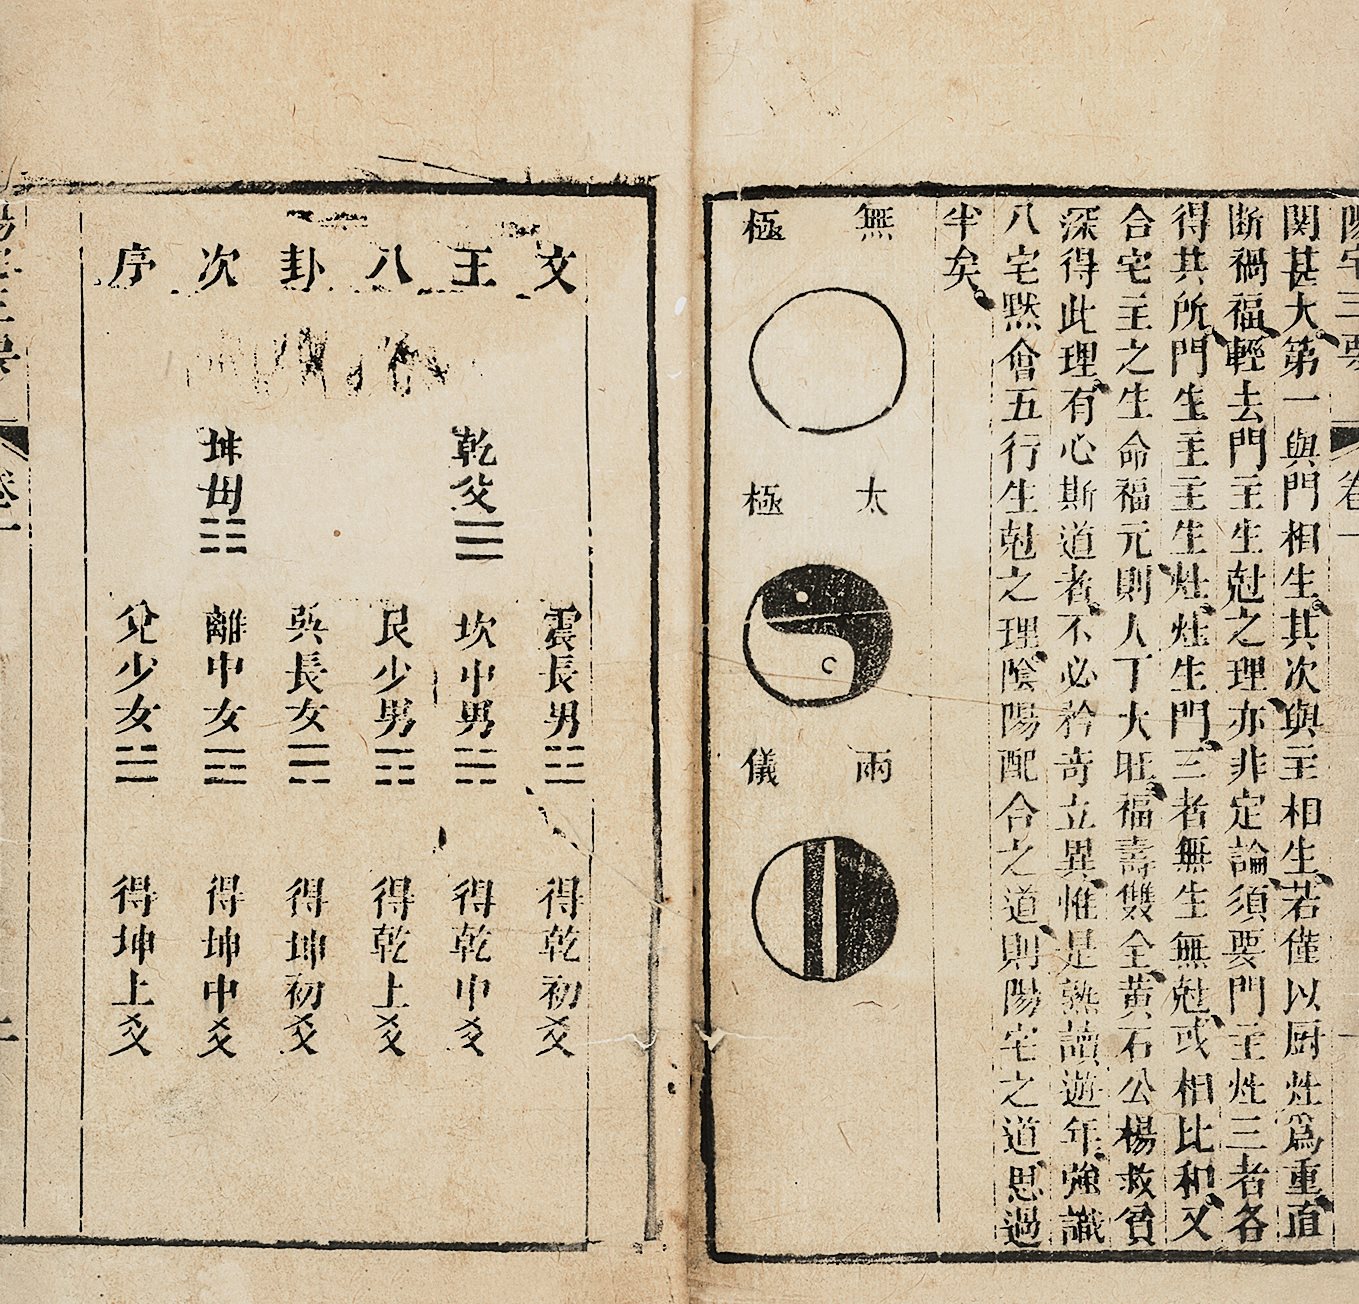 陽宅三要 卷一
関甚大第一與門相生其次與主相生若僅以厨灶爲重直
断禍福輕去門主生尅之理亦非定論須要門主灶三者各
得其所門生主主生灶灶生門三者無生無尅或相比和又
合宅主之生命福元則人丁大旺福壽雙全黄石公楊救貧
深得此理有心斯道者不必矜奇立異惟是熟讀遊年強識
八宅黙會五行生尅之理陰陽配合之道則陽宅之道思過
半矣
無極
太極
兩儀
文王八卦次序
乾父☰
坤母☷
震長男☳ 得乾初爻
坎中男☵ 得乾中爻
艮少男☶ 得乾上爻
巽長女☴ 得坤初爻
離中女☲ 得坤中爻
兌少女☱ 得坤上爻
陽宅三要 卷一